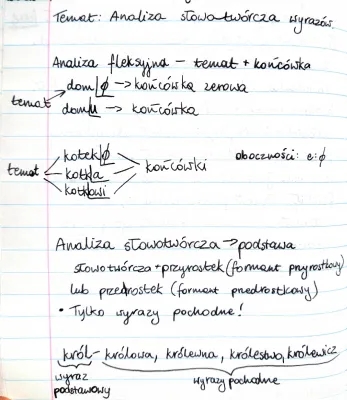 Temat: Analiza słowotwórcza wyrazów.
Analiza fleksyjna – temat + końcówka
dom|ø → końcówka zerowa
temat
dom|u → końcówka
kotek|ø
temat kotk|a końcówki oboczności: e:ø
kotk|owi
Analiza słowotwórcza → podstawa
słowotwórcza + przyrostek (formant przyrostkowy)
lub przedrostek (formant przedrostkowy)
• Tylko wyrazy pochodne!
król – królowa, królewna, królestwo, królewicz
wyraz podstawowy
wyrazy pochodne